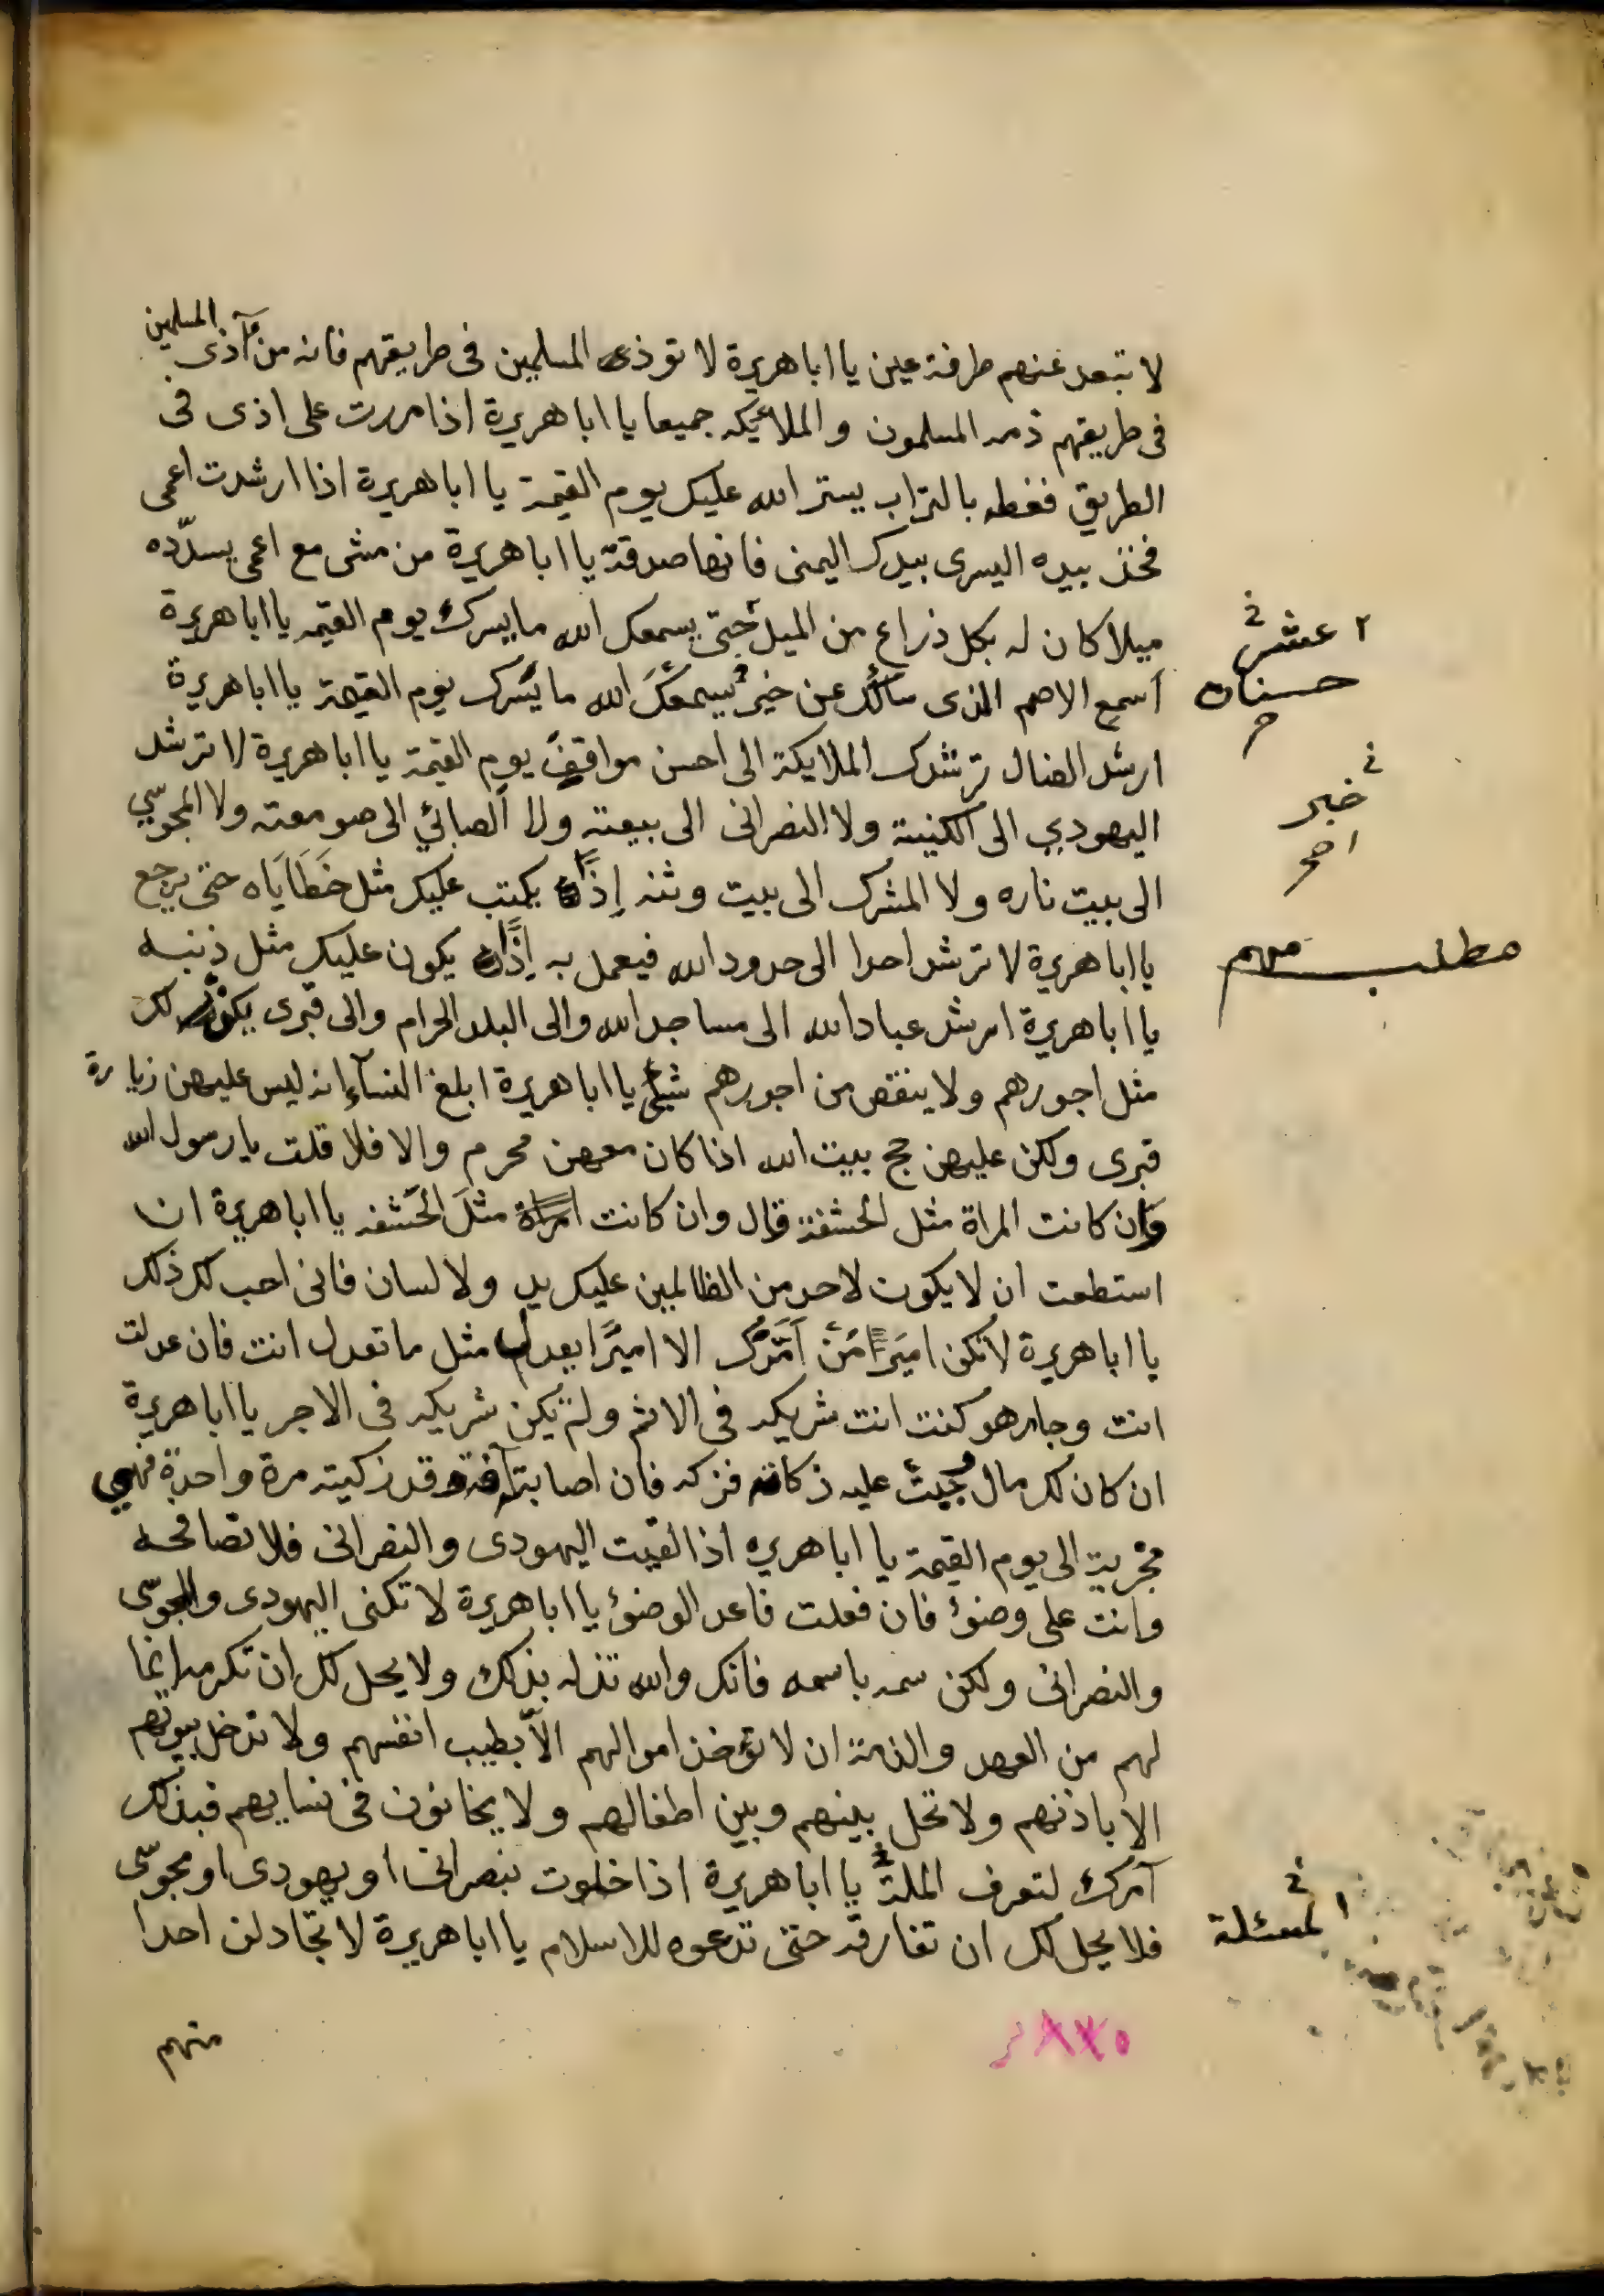 لا تبعد عنهم طرفة عين يا ابا هريرة لا توذى المسلمين فى طريقهم فانه من آذى المسلمين
فى طريقهم ذمه المسلمون و الملائيكه جميعا يا ابا هريرة اذا مررت على اذى فى
الطريق فغطه بالتراب يستر الله عليك يوم القيمة يا ابا هريرة اذا ارشدت اعمى
فخذ بيده اليسرى بيدك اليمنى فانها صدقة يا ابا هريرة من مشى مع اعمى يسدّده
ميلا كان له بكل ذراع من الميل حتى يسمعك الله ما يسرك يوم القيمه يا ابا هريرة
اسمع الاصم الذى سألك عن خير يسمعك الله ما يسرك يوم القيمة يا ابا هريرة
ارشد الضال ترشدك الملايكة الى احسن مواقف يوم القيمة يا ابا هريرة لا ترشد
اليهودي الى الكنيسة ولا النصرانى الى بيعته ولا الصبائي الى صومعته ولا المجوسّي
الى بيت ناره ولا المشرك الى بيت وثنه إذًا يكتب عليك مثل خَطَايَاه حتى يرجع
يا ابا هريرة لا ترشد احدا الى حدود الله فيعمل به إذًا يكون عليك مثل ذنبه
يا ابا هريرة ارشد عباد الله الى مساجد الله والى البلد الحرام والى قبرى يكون لك
مثل اجورهم ولا ينقص من اجورهم شيئ يا ابا هريرة ابلغ النسآء انه ليس عليهن زيارة
قبرى ولكن عليهن حج بيت الله اذا كان معهن محرم والا فلا قلت يا رسول الله
وان كانت المراة مثل الحشفة قال وان كانت امراة مثل الحَشفه يا ابا هريرة ان
استطعت ان لا يكون لاحد من الظالمين عليك يد ولا لسان فانى احب لك ذلك
يا ابا هريرة لا تكن اميرًا من أمّرك الا اميرًا يعدل مثل ما تعدل انت فان عدلت
انت وجار هو كنت انت شريكه فى الاثم ولم يكن شريكه فى الاجر يا ابا هريرة
ان كان لك مال وجبت عليه زكاة فزكه فان اصابته آفة وقد زكيته مرة واحدة فهي
مجزية الى يوم القيمة يا ابا هريره اذا لقيت اليهودى والنصرانى فلا تصافحه
وانت على وضوءٔ فان فعلت فاعد الوضوءٔ يا ابا هريرة لا تكنى اليهودى والمجوسّى
والنصرانى ولكن سمه باسمه فانك والله تذله بذلك ولا يحل لك ان تكرمه انما
لهم من العهد والذمة ان لا تؤخذ اموالهم الا بطيب انفسهم ولا تدخل بيوتهم
الا باذنهم ولا تحل بينهم وبين اطفالهم ولا يخانون فى نسايهم فبذلك
آمرك لتعرف الملة يا ابا هريرة اذا خلوت بنصرانى او يهودى او مجوسّى
فلا يحل لك ان تفارقه حتى تدعوه للاسلام يا ابا هريرة لا تجادلن احدا
منهم
عشر
حسنات
خبر
مطلب مهم
المسئلة